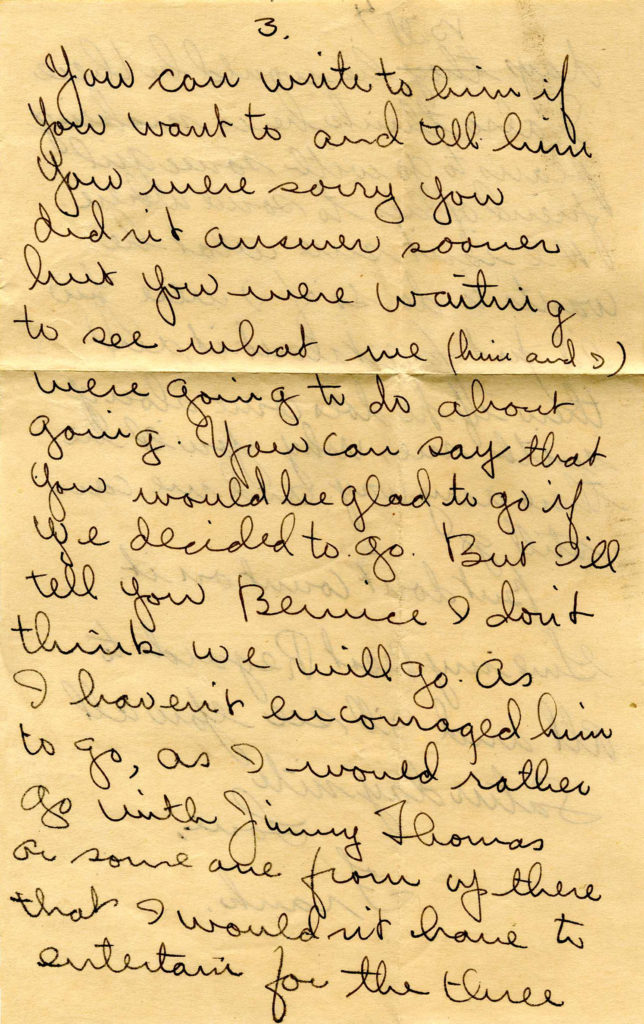 3.
You can write to him if
you want to and tell him
you were sorry you
didn't answer sooner
but you were waiting
to see what we (him and I)
were going to do about
going. You can say that
you would be glad to go if
we decided to go. But I'll
tell you Bernice I don't
think we will go. As
I haven't encouraged him
to go, as I would rather
go with Jimmy Thomas
or some one from up there
that I wouldn't have to
entertain for the three